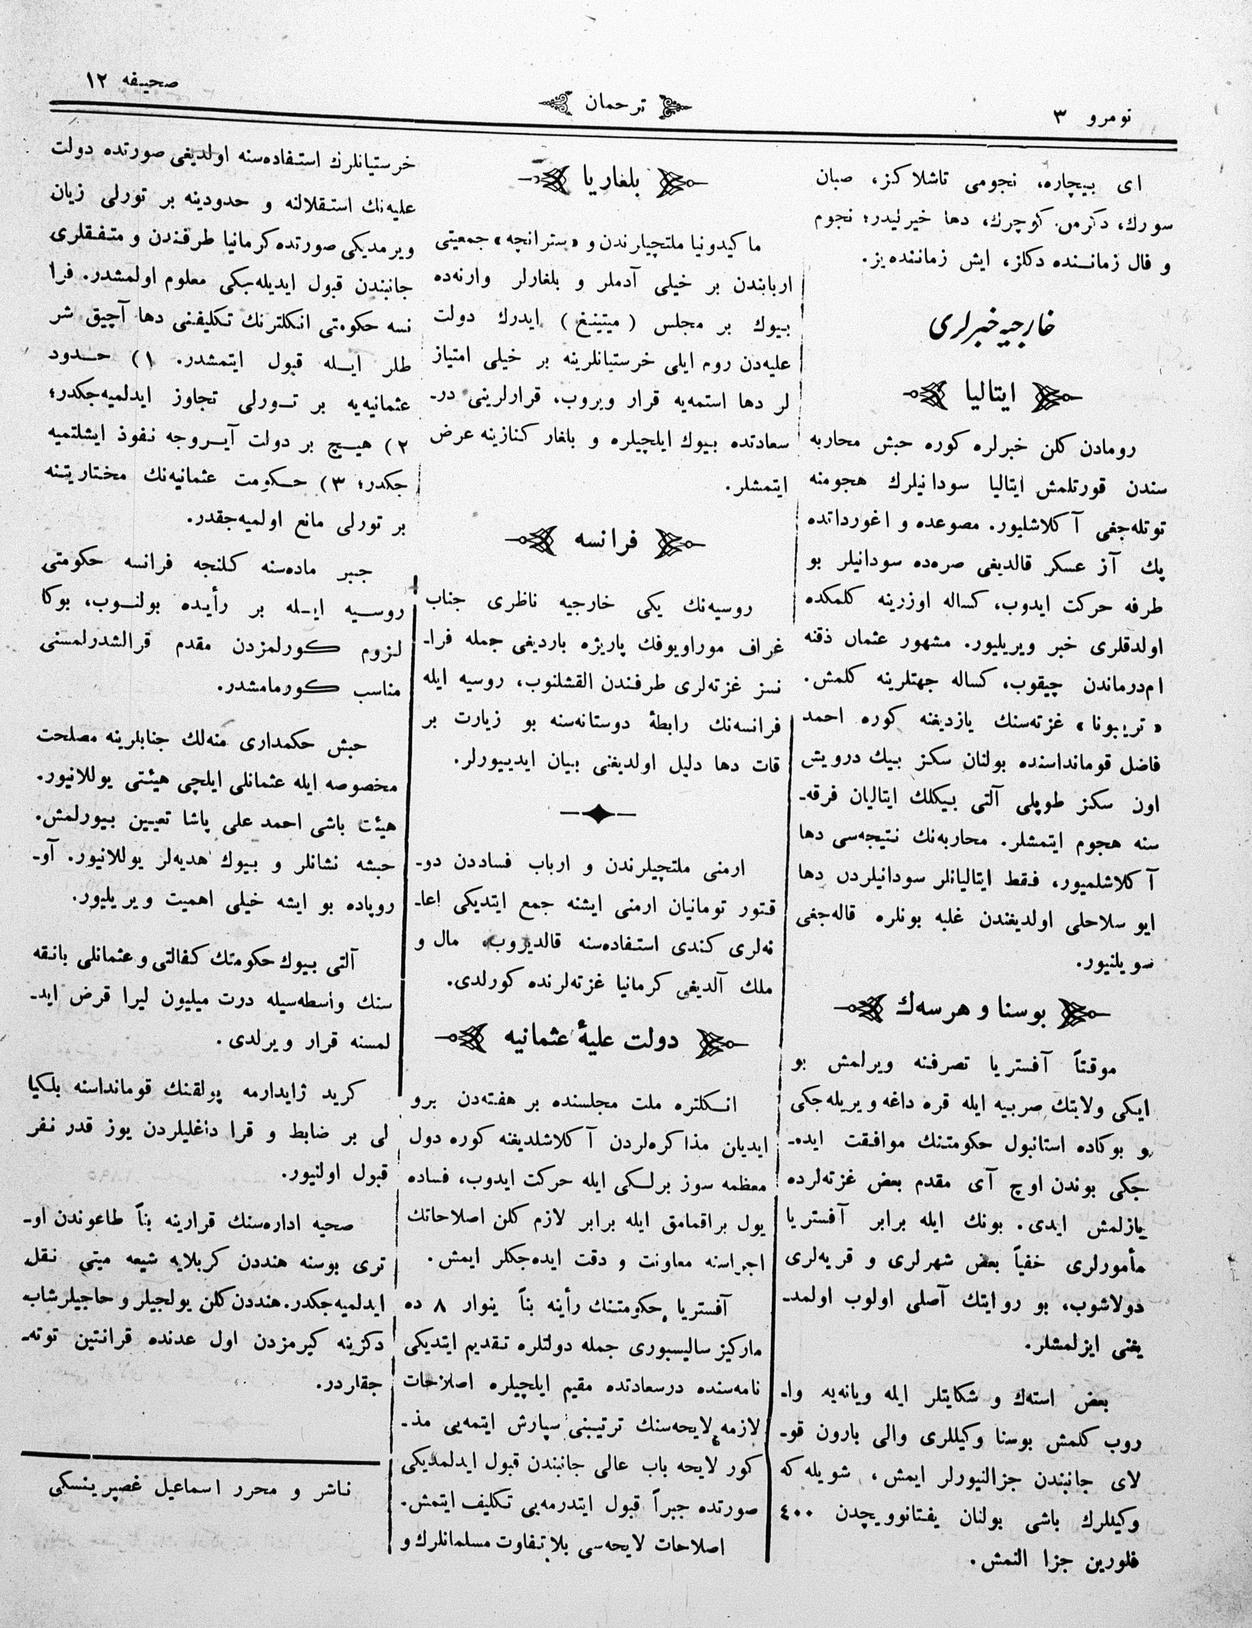 نومرو ٣
ترجمان
صحیفه ١٢
ای بیچاره، نجومی تاشلاكز، صبان
سورك، دكرمن كوچرك، دها خیرلیدر؛ نجوم
و فال زماننده دكلز، ایش زماننده‌یز.
خارجیه خبرلری
ایتالیا
رومادن كلن خبرلره كوره حبش محاربه
سندن قورتلمش ایتالیا سودانیلرك هجومنه
توتله‌جغی آكلاشلیور. مصوعده و اغورداتده
پك آز عسكر قالدیغی صره‌ده سودانیلر بو
طرفه حركت ایدوب، كساله اوزرینه كلمكده
اولدقلری خبر ویریلیور. مشهور عثمان دقنه
ام‌درماندن چیقوب، كساله جهتلرینه كلمش.
« تریبونا » غزته‌سنك یازدیغنه كوره احمد
فاضل قومانداسنده بولنان سكز بیك درویش
اون سكز طوپلی آلتی بیكلك ایتالیان فرقه‌ـ
سنه هجوم ایتمشلر. محاربه‌نك نتیجه‌سی دها
آكلاشلمیور، فقط ایتالیانلر سودانیلردن دها
ایو سلاحلی اولدیغندن غلبه بونلره قاله‌جغی
سویلنیور.
بوسنا و هرسه‌ك
موقتاً آفستریا تصرفنه ویرلمش بو
ایكی ولایتك صربیه ایله قره داغه ویریله‌جكی
و بوكاده استانبول حكومتنك موافقت ایده‌ـ
جكی بوندن اوچ آی مقدم بعض غزته‌لرده
یازلمش ایدی. بونك ایله برابر آفستریا
مأمورلری خفیاً بعض شهرلری و قریه‌لری
دولاشوب، بو روایتك آصلی اولوب اولمدـ
یغنی ایزلمشلر.
بعض استه‌ك و شكایتلر ایله ویانه‌یه واـ
روب كلمش بوسنا وكیللری والی بارون قوـ
لای جانبندن جزالنیورلر ایمش، شویله‌كه
وكیللرك باشی بولنان یفتانوویچدن ٤٠٠
فلورین جزا النمش.
بلغاریا
ماكیدونیا ملتچیلرندن و « سترانچه » جمعیتی
اربابندن بر خیلی آدملر و بلغارلر وارنه‌ده
بیوك بر مجلس ( میتینغ ) ایدرك دولت
علیه‌دن روم ایلی خرستیانلرینه بر خیلی امتیاز
لر دها استمه‌یه قرار ویروب، قرارلرینی درـ
سعادتده بیوك ایلچیلره و بلغار كنازینه عرض
ایتمشلر.
فرانسه
روسیه‌نك یكی خارجیه ناظری جناب
غراف موراویوفك پاریژه باردیغی جمله فراـ
نسز غزته‌لری طرفندن القشلنوب، روسیه ایله
فرانسه‌نك رابطهٔ دوستانه‌سنه بو زیارت بر
قات دها دلیل اولدیغنی بیان ایدییورلر.
ارمنی ملتچیلرندن و ارباب فساددن دوـ
قتور تومانیان ارمنی ایشنه جمع ایتدیكی اعاـ
نه‌لری كندی استفاده‌سنه قالدیروب، مال و
ملك آلدیغی كرمانیا غزته‌لرنده كورلدی.
دولت علیهٔ عثمانیه
انكلتره ملت مجلسنده بر هفته‌دن برو
ایدیلن مذاكره‌لردن آكلاشلدیغنه كوره دول
معظمه سوز برلكی ایله حركت ایدوب، فساده
یول براقمامق ایله برابر لازم كلن اصلاحاتك
اجراسنه معاونت و دقت ایده‌جكلر ایمش.
آفستریا حكومتنك رأینه بناً ینوار ٨ ده
ماركیز سالیسبوری جمله دولتلره تقدیم ایتدیكی
نامه‌سنده درسعادتده مقیم ایلچیلره اصلاحات
لازمه لایحه‌سنك ترتیبنی سپارش ایتمه‌یی مذـ
كور لایحه باب عالی جانبندن قبول ایدلمدیكی
صورتده جبراً قبول ایتدرمه‌یی تكلیف ایتمش.
اصلاحات لایحه‌سی بلا تفاوت مسلمانلرك و
خرستیانلرك استفاده‌سنه اولدیغی صورتده دولت
علیه‌نك استقلالنه و حدودینه بر تورلی زیان
ویرمدیكی صورتده كرمانیا طرفندن و متفقلری
جانبندن قبول ایدیله‌جكی معلوم اولمشدر. فرا
نسه حكومتی انكلترنك تكلیفنی دها آچیق شر
طلر ایله قبول ایتمشدر. ١) حدود
عثمانیه‌یه بر تورلی تجاوز ایدلمیه‌جكدر؛
٢) هیچ بر دولت آیروجه نفوذ ایشلتمیه
جكدر؛ ٣) حكومت عثمانیه‌نك مختاریتنه
بر تورلی مانع اولمیه‌جقدر.
جبر ماده‌سنه كلنجه فرانسه حكومتی
روسیه ایله بر رأیده بولنوب، بوكا
لزوم كورلمزدن مقدم قرالشدرلمسنی
مناسب كورمامشدر.
حبش حكمداری منه‌لك جنابلرینه مصلحت
مخصوصه ایله عثمانلی ایلچی هیئتی یوللانیور.
هیئت باشی احمد علی پاشا تعیین بیورلمش.
حبشه نشانلر و بیوك هدیه‌لر یوللانیور. آوـ
روپاده بو ایشه خیلی اهمیت ویریلیور.
آلتی بیوك حكومتك كفالتی و عثمانلی بانقه
سنك واسطه‌سیله درت میلیون لیرا قرض ایدـ
لمسنه قرار ویرلدی.
كرید ژاندارمه پولقنك قومانداسنه بلكیا
لی بر ضابط و قرا داغلیلردن یوز قدر نفر
قبول اولنیور.
صحیه اداره‌سنك قرارینه بناً طاعوندن اوـ
تری بوسنه هنددن كربلایه شیعه میتی نقل
ایدلمیه‌جكدر. هنددن كلن یولجیلر و حاجیلر شاب
دكزینه كیرمزدن اول عدنده قرانتین توته‌ـ
جقلردر.
ناشر و محرر اسماعیل غصپرینسكی